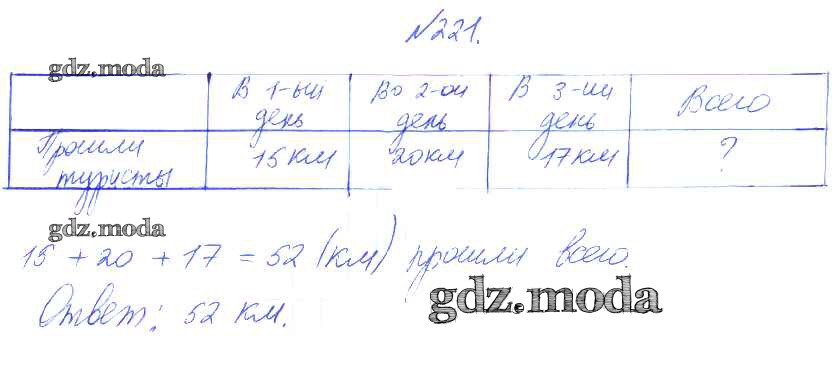 №221.
gdz.moda
В 1-ый день Во 2-ой день В 3-ий день Всего
Прошли туристы 15 км 20 км 17 км ?
gdz.moda
15 + 20 + 17 = 52 (км) прошли всего.
Ответ: 52 км.
gdz.moda